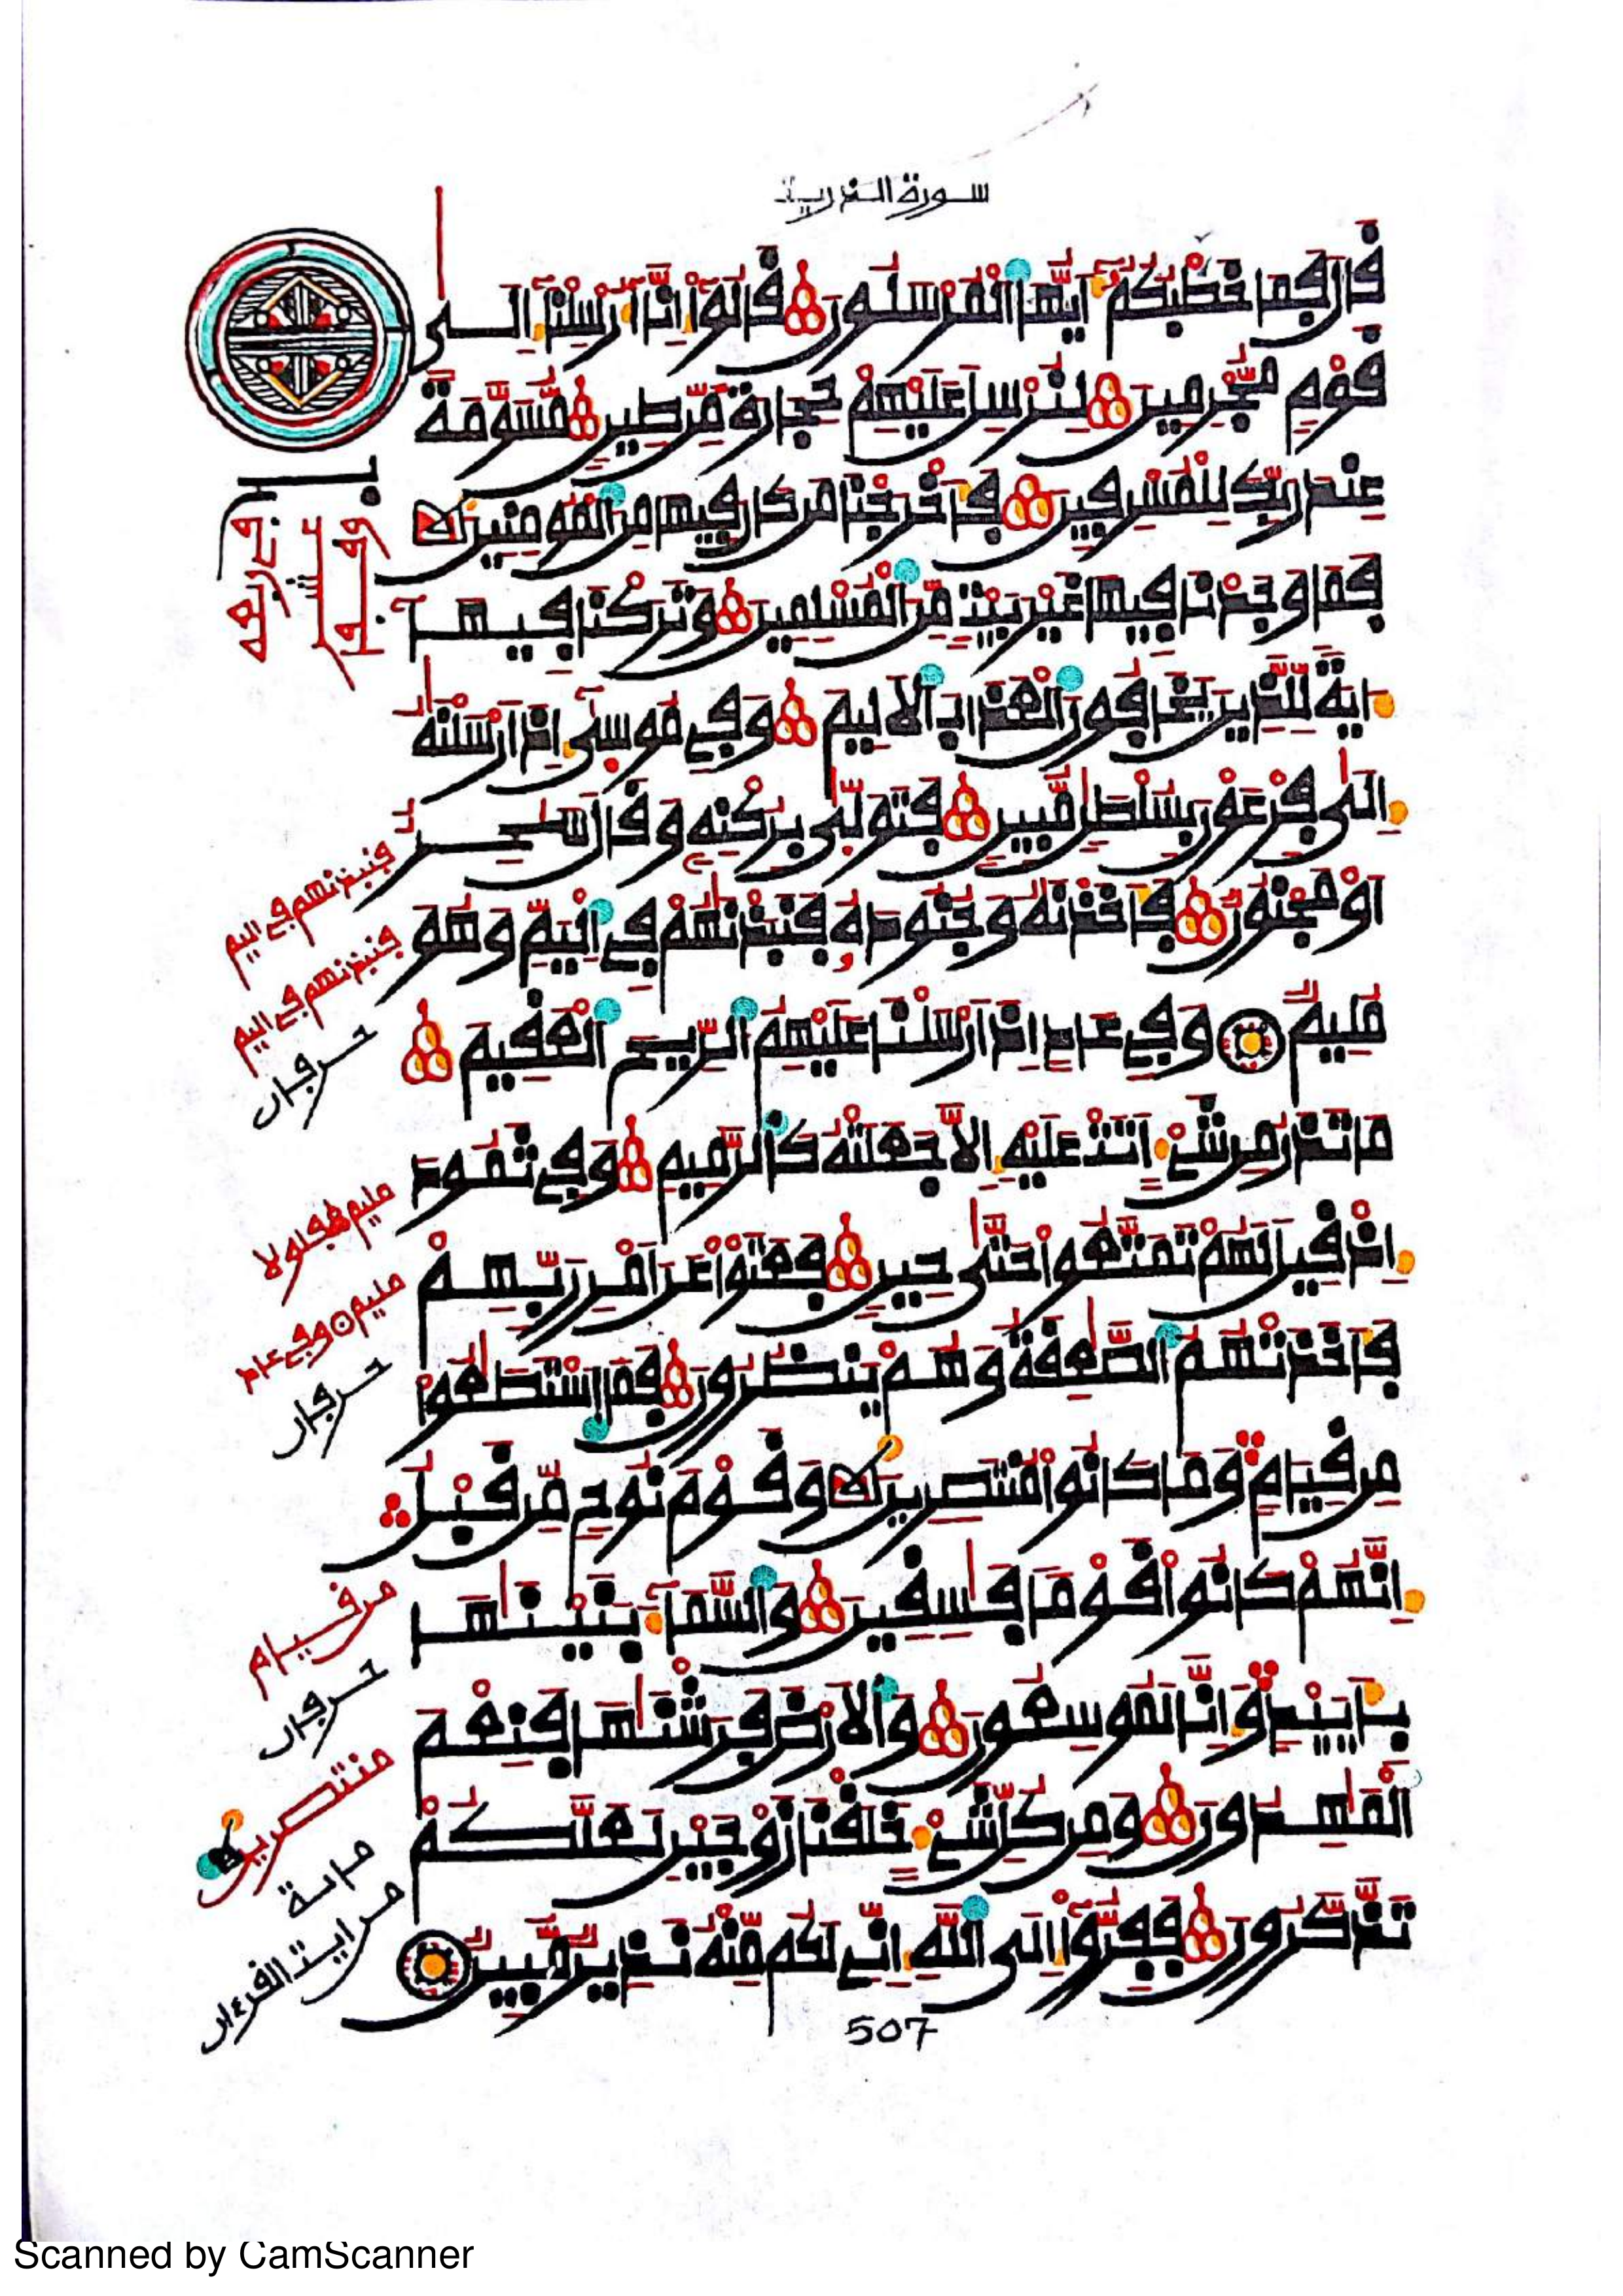 سورة الذريت
قَالَ فَمَا خَطْبُكُمْ أَيُّهَا الْمُرْسَلُونَ قَالُوا إِنَّا أُرْسِلْنَا إِلَى
قَوْمٍ مُّجْرِمِينَ لِنُرْسِلَ عَلَيْهِمْ حِجَارَةً مِّن طِينٍ مُّسَوَّمَةً
عِندَ رَبِّكَ لِلْمُسْرِفِينَ فَأَخْرَجْنَا مَن كَانَ فِيهَا مِنَ الْمُومِنِينَ
فَمَا وَجَدْنَا فِيهَا غَيْرَ بَيْتٍ مِّنَ الْمُسْلِمِينَ وَتَرَكْنَا فِيهَا
ءَايَةً لِّلَّذِينَ يَخَافُونَ الْعَذَابَ الْأَلِيمَ وَفِي مُوسَى إِذْ أَرْسَلْنَهُ
إِلَى فِرْعَوْنَ بِسُلْطَنٍ مُّبِينٍ فَتَوَلَّى بِرُكْنِهِ وَقَالَ سَحِرٌ
أَوْ مَجْنُونٌ فَأَخَذْنَهُ وَجُنُودَهُ فَنَبَذْنَهُمْ فِي الْيَمِّ وَهُوَ
مُلِيمٌ وَفِي عَادٍ إِذْ أَرْسَلْنَا عَلَيْهِمُ الرِّيحَ الْعَقِيمَ
مَا تَذَرُ مِن شَيْءٍ أَتَتْ عَلَيْهِ إِلَّا جَعَلَتْهُ كَالرَّمِيمِ وَفِي ثَمُودَ
إِذْ قِيلَ لَهُمْ تَمَتَّعُوا حَتَّى حِينٍ فَعَتَوْا عَنْ أَمْرِ رَبِّهِمْ
فَأَخَذَتْهُمُ الصَّعِقَةُ وَهُمْ يَنظُرُونَ فَمَا اسْتَطَعُوا
مِن قِيَامٍ وَمَا كَانُوا مُنتَصِرِينَ وَقَوْمَ نُوحٍ مِّن قَبْلُ
إِنَّهُمْ كَانُوا قَوْمًا فَسِقِينَ وَالسَّمَاءَ بَنَيْنَهَا
بِأَيْيدٍ وَإِنَّا لَمُوسِعُونَ وَالْأَرْضَ فَرَشْنَهَا فَنِعْمَ
الْمَهِدُونَ وَمِن كُلِّ شَيْءٍ خَلَقْنَا زَوْجَيْنِ لَعَلَّكُمْ
تَذَّكَّرُونَ فَفِرُّوا إِلَى اللَّهِ إِنِّي لَكُم مِّنْهُ نَذِيرٌ مُّبِينٌ
فنبذنهم في اليم
فنبذنهم في اليم
حرفان
مليم
مليم وفي عاد
حرفان
من قيام
حرفان
منتصرين
مائة
من ايت القرءان
507
Scanned by CamScanner